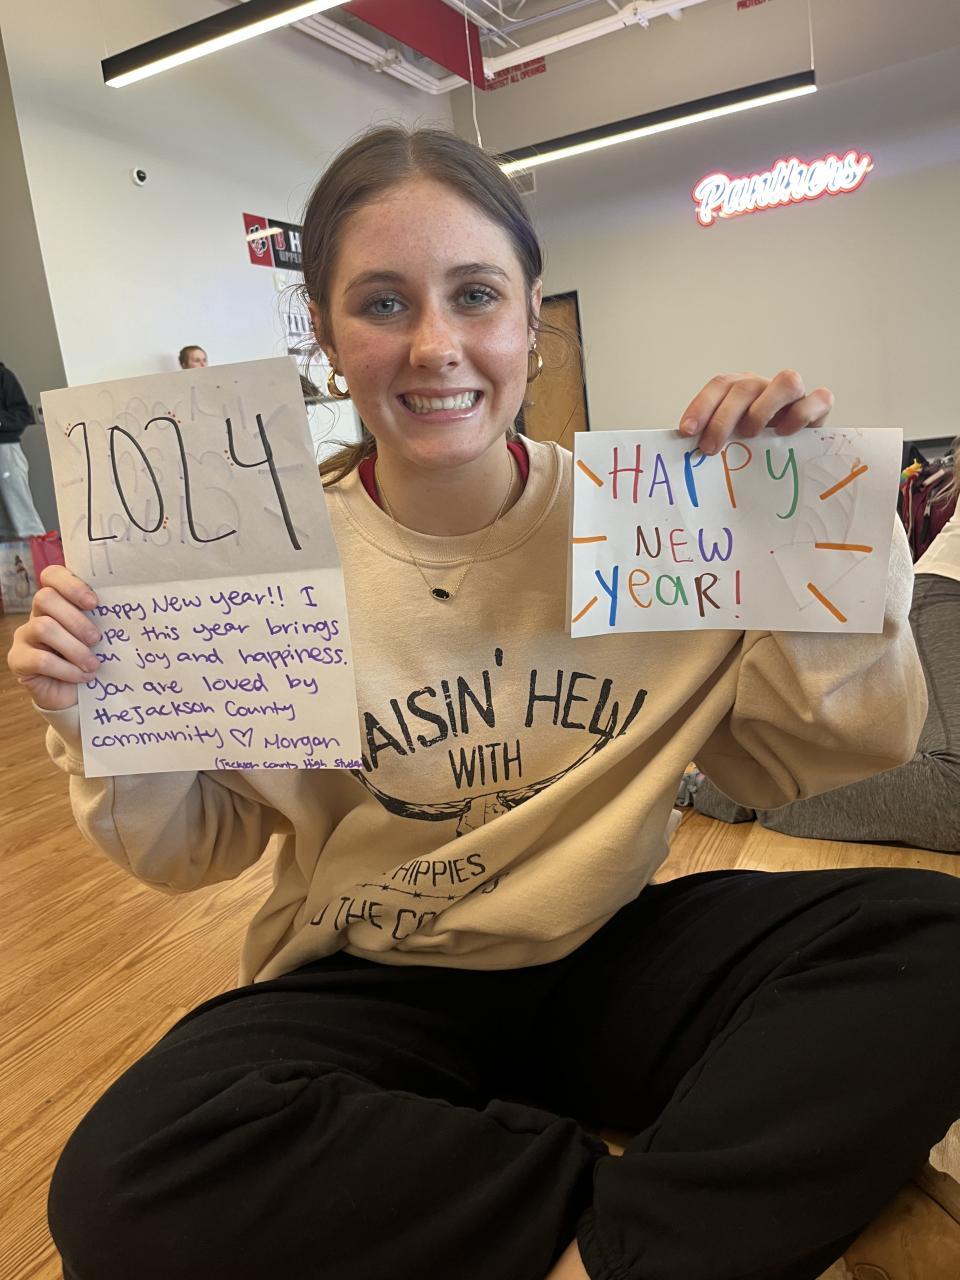 PROTECT ALL OPENINGS
Panthers
2024
Happy New year!! I
pe this year brings
joy and happiness.
you are loved by
the Jackson County
community ♡ Morgan
(Jackson County High Stude
HAPPY
NEW
YeaR!
AISIN' HELL
WITH
HIPPIES
THE CO